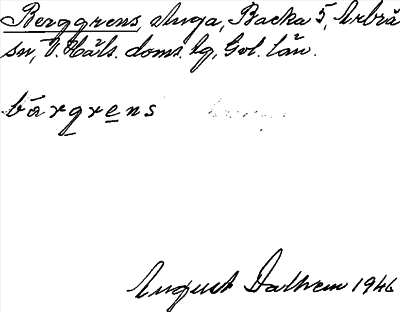 Berggrens, stuga, Backa 5, Arbrå
sn, V. Häls. doms. lg, Gvl. län.
bärgrens
August Dalhem 1946